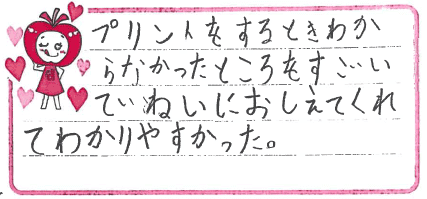 プリントをするときわか
らなかったところをすごい
ていねいにおしえてくれ
てわかりやすかった。